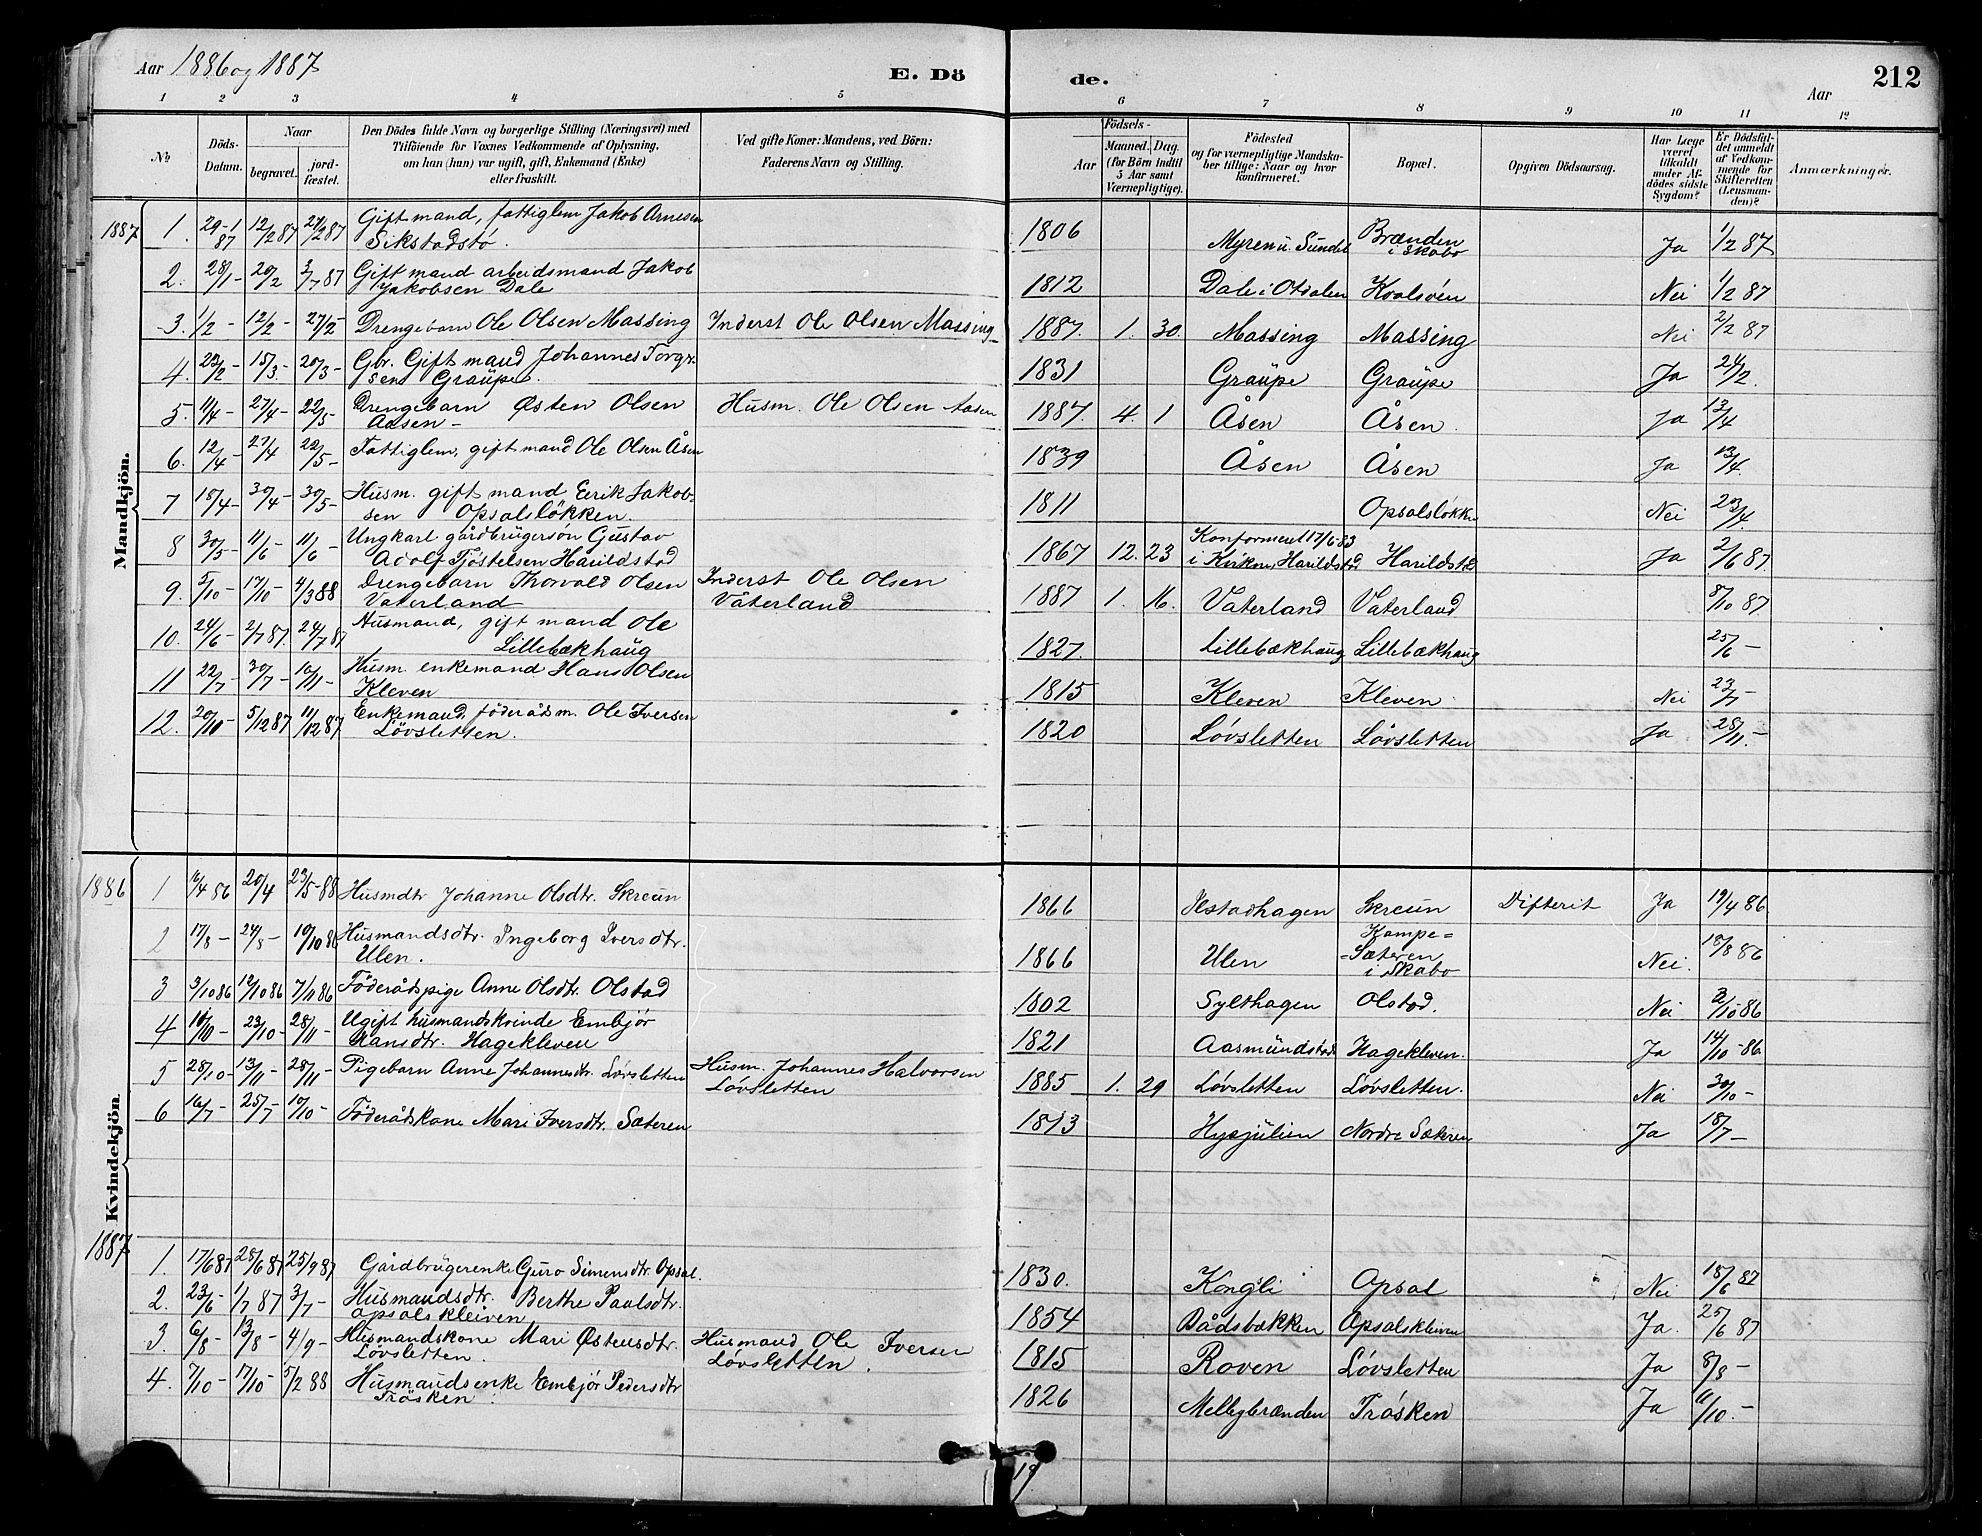 Aar 1886 og 1887
E. Dö
de.
Aar
212
1 2 3 4 5 6 7 8 9 10 11 12
№
Döds-Datum.
Naar
begravet.
jord-fæstet.
Den Dödes fulde Navn og borgerlige Stilling (Næringsvei) med
Tilföiende for Voxnes Vedkommende af Oplysning,
om han (hun) var ugift, gift, Enkemand (Enke)
eller fraskilt.
Ved gifte Koner: Mandens, ved Börn:
Faderens Navn og Stilling.
Födsels-
Aar
Maaned. Dag.
(for Börn indtil
5 Aar samt
Værnepligtige).
Födested
og for værnepligtige Mandska-
ber tillige: Naar og hvor
konfirmeret.
Bopæl.
Opgiven Dödsaarsag.
Har Læge
været
tilkaldt
under Af-
dödes sidste
Sygdom?
Er Dödsfal-
det anmeldt
af Vedkom-
mende for
Skifteretten
(Lensman-
den)?
Anmærkninger.
Mandkjön.
1887 1. 29-1 87 12/2 87 27/2 87 Gift mand, fattiglem Jakob Arnesen 1806 Myren u. Sundet Brænden Ja 1/2 87
Sikstadstø. i Skabo
2. 28/1- 20/2 3/7 87 Gift mand arbeidsmand Jakob 1812 Dale i Otdalen Kvalsvén Nei 1/2 87
Jakobsen Dale
3. 1/2- 12/2- 27/2- Drengebarn Ole Olsen Massing Inderst Ole Olsen Massing 1887. 1. 30. Massing Massing Nei 2/2 87
4. 23/2- 15/3- 20/3- Gbr. Gift mand Johannes Torgr. 1831 Graupe Graupe Ja 24/2.
sen Graupe.
5. 11/4- 27/4- 22/5- Drengebarn Østen Olsen Husm. Ole Olsen Aasen 1887. 4. 1 Åsen Åsen. Ja 13/4
Aasen-
6. 12/4 27/4 22/5- Fattiglem, gift mand Ole Olsen Åsen 1839 Åsen Åsen Ja 13/4.
7 18/4- 30/4- 30/5- Husm. gift mand Eerik Jakob- 1811 Opsalsløkk. Nei 20/4
sen Opsalsløkken.
8 30/5- 11/6- 11/6- Ungkarl gårdbrugersøn Gustav 1867 12. 23 Konfirmeret 17/6-83 Harildst. Ja 2/6 87.
Adolf Tjøstelsen Harildstad i Kirken, Harildstad
9. 5/10- 17/10- 4/3 88 Drengebarn Thorvald Olsen Inderst Ole Olsen 1887 1. 16. Vaterland Vaterland 8/10 87
Vaterland Våterland
10. 24/6- 2/7 87. 24/7 87 Husmand, gift mand Ole 1827. Lillebækhaug Lillebækhaug 25/6-
Lillebækhaug
11 22/7- 30/7- 10/11- Husm. enkemand Hans Olsen 1815 Kleven Kleven Nei 23/7-
Kleven
12. 20/11- 5/12 87 11/12 87 Enkemand, föderådsm. Ole Iversen 1820 Lövsletten Lövsletten Ja 28/11.-
Lövsletten.
Kvindekjön.
1886 1 16/4 86 20/4 23/5-88 Husmdtr Johanne Olsdtr. Skreun 1866 Ilstadhagen Skreun Difterit Ja 19/4 86
2 17/8- 24/8- 10/10 86 Husmandsdtr. Ingeborg Iversdtr. 1866 Ulen Kampe= Nei. 18/8 86
Ulen. =Sæteren
i Skabo
3 3/10 86 12/10 86 7/11 86 Föderådspige Anne Olsdtr. Olstad 1802 Sylthagen Olstad. Nei 3/10 86
4 10/10- 23/10- 28/11- Ugift husmandskvinde Embjör 1821 Aasmundstad Hagekleven. Ja 14/10-86
Hansdtr. Hagekleven
5 28/10- 13/11- 28/11- Pigebarn Anne Johannesdtr. Lövsletten Husm. Johannes Halvorsen 1885 1. 29 Lövsletten Lövsletten. Nei 30/10-
Lövsletten
6 16/7- 25/7- 10/10- Föderådskone Mari Iversdtr. Sæteren 1813 Nordre Sæteren Ja 18/7-
1887 1. 17/6 87 28/6 87 25/9 87 Gårdbrügerenke Guro Simensdtr. Opsal. 1830. Kongli Opsal Nei 18/6 87
2. 23/6- 1/7 87 3/7- Husmandsdtr. Berthe Paulsdtr. 1854 Bådsbækken Opsalskleiven Ja. 25/6 87
opsalskleiven
3. 6/8- 13/8- 4/9- Husmandskone Mari Østensdtr. Husmand Ole Iversen 1815 Roven Lövsletten Ja 8/8-
Lövsletten. Lövsletten.
4. 7/10- 17/10- 5/2 88 Husmandsenke Embjör Pedersdtr 1826 Mellybrænden Trösken Ja 11/10.-
Trösken.
19